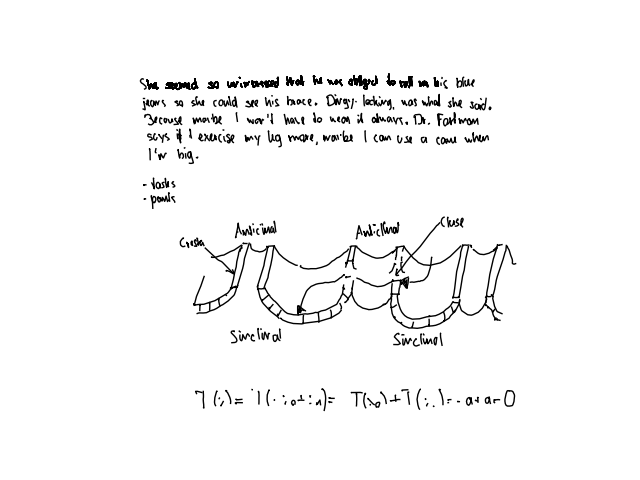 She seemed so unconvinced that he was obliged to roll up his blue
jeans so she could see his brace. Dingy-looking, was what she said.
Because maybe I won't have to wear it always. Dr. Fortman
says if I exercise my leg more, maybe I can use a cane when
I'm big.
- tasks
Anticlinal
Anticlinal
Cluse
Cresta
Sinclinal
Sinclinal